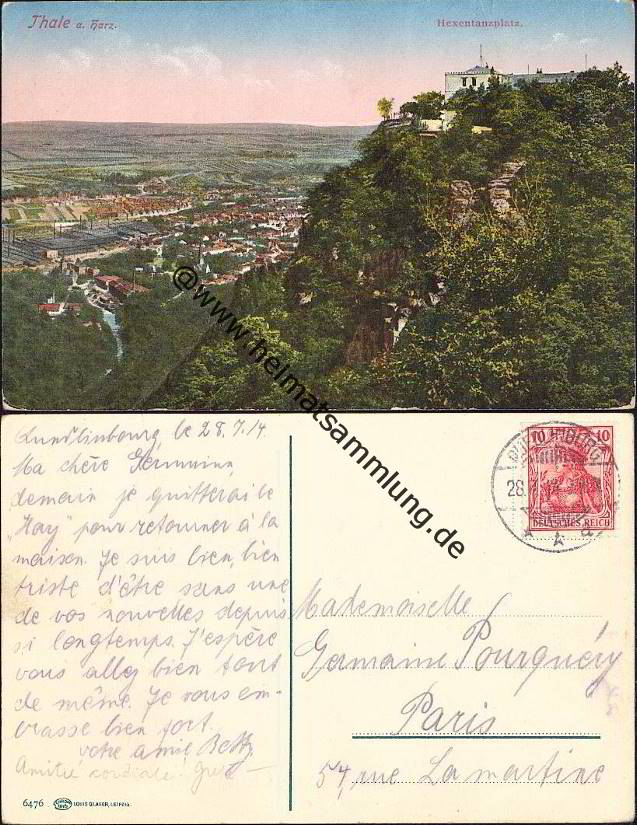 Thale a. Harz.
Hexentanzplatz.
@www.heimatsammlung.de
le 28.7.14
Ma chère
demain je quitterai le
"Hay" pour retourner à la
maison. Je suis bien, bien
triste d'être sans une
de vos nouvelles depuis
si longtemps. J'espère
vous allez bien tout
de même. Je vous em-
brasse bien fort.
votre amie
Amitié cordiale!
6476 LOUIS GLASER, LEIPZIG.
10 10
DEUTSCHES REICH
28.
Mademoiselle
Germaine Pourquéry
Paris
54, rue Lamartine